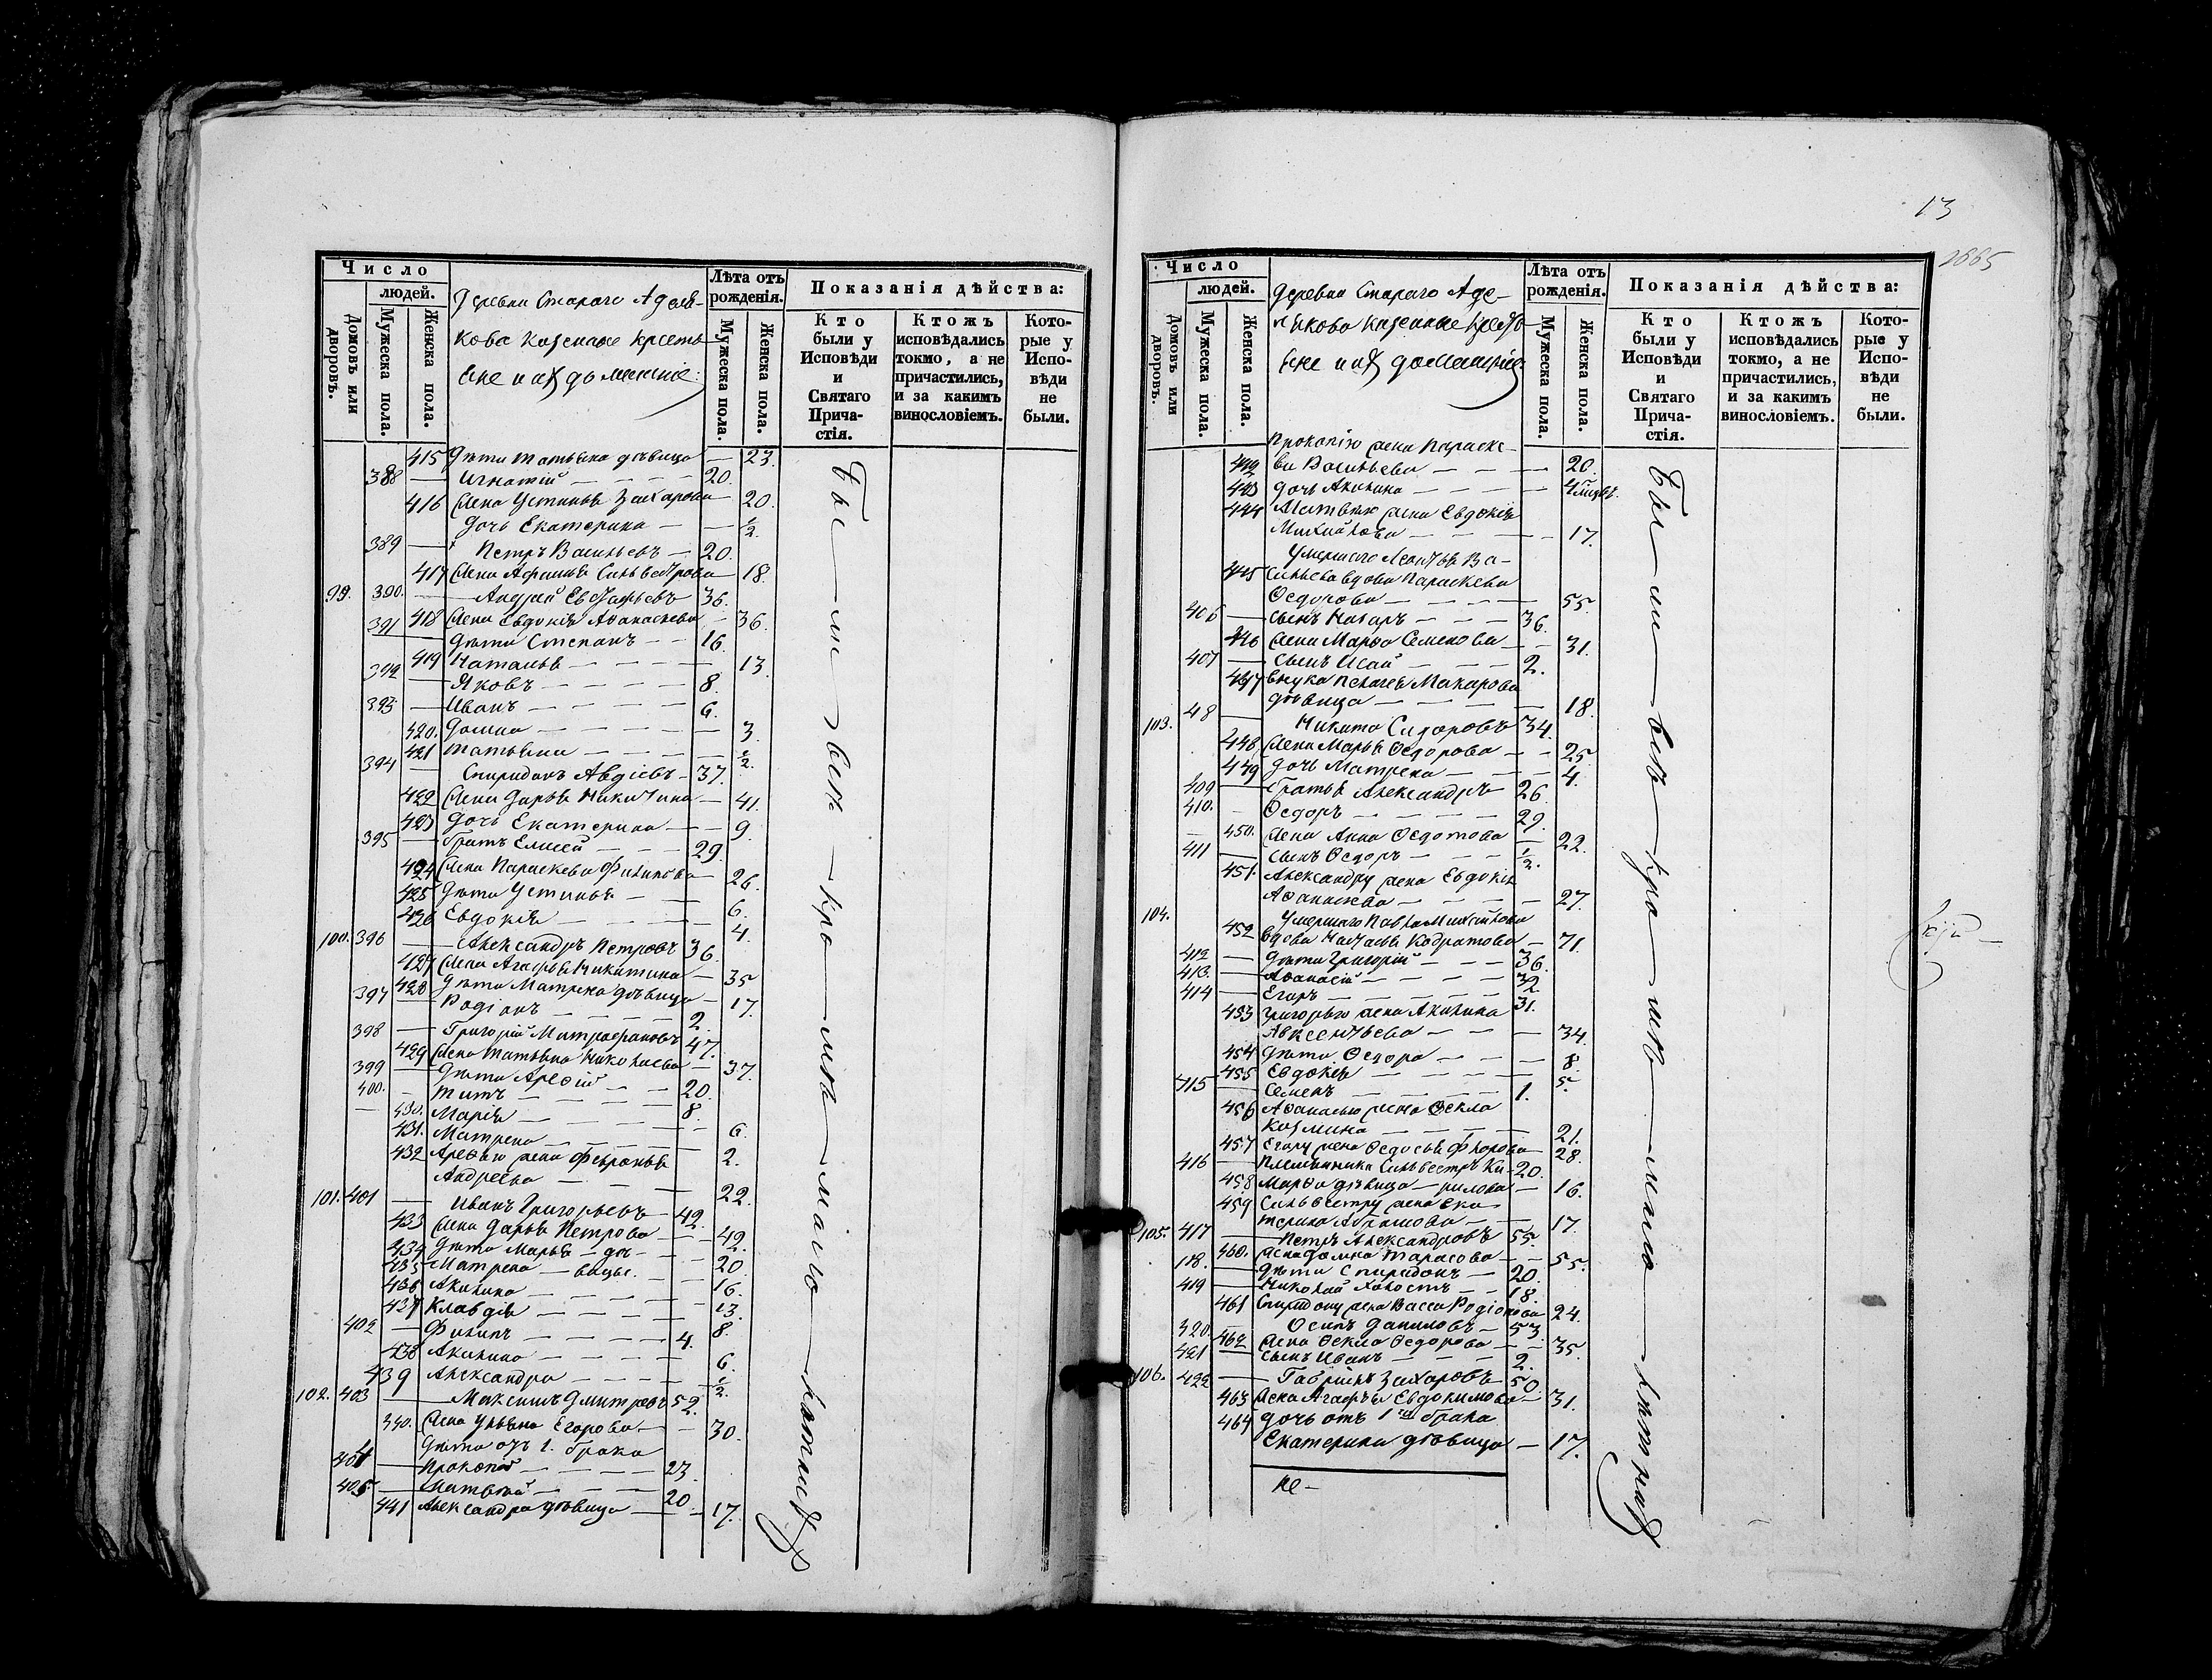 Число
людей.
Домовъ или дворовъ.
Мужеска пола.
Женска пола.
Деревни Стараго Адели-
кова казенные кресть-
яне и ихъ домашніе:
Лѣта отъ рожденія.
Мужеска пола.
Женска пола.
Показанія дѣйства:
Кто были у Исповѣди и Святаго Прича-стія.
Ктожъ исповѣдались токмо, а не причастились, и за какимъ винословіемъ.
Кото-рые у Испо-вѣди не были.
415 Дѣти Татьяна дѣвица — 23.
388 — Игнатій — 20.
416 Жена Устинья Захарова — 20.
Дочь Екатерина — 1/2.
389 — Петръ Васильевъ — 20.
417 Жена Афимья Сильвестрова — 18.
99. 390. — Андрей Евстафьевъ 36.
418 Жена Евдокія Аѳанасьева — 36.
391 — Дѣти Степанъ — 16.
419 Наталья — 13.
392 — Яковъ — 8.
393 — Иванъ — 6.
420. Домна — 3.
421 Татьяна — 1/2.
394 — Спиридонъ Авдіевъ — 37.
422 Жена Дарья Никитина — 41.
423 Дочь Екатерина — 9.
395 — Братъ Елисей — 29.
424 Жена Параскева Филипова — 26.
425 Дѣти Устинья — 6.
426 Евдокія — 4.
100. 396 — Александръ Петровъ 36.
427 Жена Агафья Никитина — 35
428 Дѣти Матрена дѣвица — 17.
397 — Родіонъ — 2.
398 — Григорій Митрофановъ 47.
429 Жена Татьяна Николаева — 37.
399 — Дѣти Ареѳій — 20.
400. — Титъ — 8.
430. Марія — 6.
431. Матрена — 2.
432 Ареѳію жена Февронья
Андреева — 22.
101. 401 — Иванъ Григорьевъ — 42.
433 Жена Дарья Петрова — 42.
434 Дѣти Марья — дѣ- — 20
435 Матрена — вицы. — 16.
436 Акилина — 13.
437 Клавдія — 8.
402 — Филипъ — 4.
438 Акилина — 6.
439 Александра — 1/2.
102. 403 — Максимъ Дмитревъ 52.
340. Жена Ульяна Егорова — 30.
Дѣти отъ 1. брака
404 — Прокопій — 23.
405 — Матвѣй — 20.
441 Александра дѣвица — 17.
Бы — ли — всѣ — кро — мѣ — мало — лѣтнихъ
13
1665
Число
людей.
Домовъ или дворовъ.
Мужеска пола.
Женска пола.
Деревни Стараго Аде-
ликова казенные кресть-
яне и ихъ домашніе:
Лѣта отъ рожденія.
Мужеска пола.
Женска пола.
Показанія дѣйства:
Кто были у Исповѣди и Святаго Прича-стія.
Ктожъ исповѣдались токмо, а не причастились, и за какимъ винословіемъ.
Кото-рые у Испо-вѣди не были.
Прокопію жена Параске-
442 ва Васильева — 20.
443 Дочь Акилина —
444 Матвѣю жена Евдокія
Михайлова — 17.
Умершаго Леонтья Ва-
445 сильева вдова Параскева
Ѳедорова — 55.
406 — Сынъ Назаръ — 36.
446 Жена Марѳа Семенова — 31.
407 — Сынъ Исай — 2.
447 Внука Пелагея Макарова
дѣвица — 18.
103. 48 — Никита Сидоровъ 34.
448 Жена Марья Ѳедорова — 25
449 Дочь Матрена — 4.
409 — Братья Александръ 26.
410. — Ѳедоръ — 29.
450. Жена Анна Ѳедотова 22.
411 — Сынъ Ѳедоръ — 1/2.
451. Александру жена Евдокія
Аѳанасьева — 27.
104. Умершаго Павла Михайлова
452 вдова Настасья Кодратова — 71.
412 — Дѣти Григорій — 36.
413. — Аѳанасій — 32.
414 — Егоръ — 31.
453 Григорью жена Акилина
Авксентьева — 34.
454 Дѣти Ѳедора — 8.
455 Евдокія — 5.
415 — Семенъ — 1.
456 Аѳанасью жена Ѳекла
Козмина — 21.
457 Егору жена Ѳедосья Флорова — 28.
416 — Племянники Сильвестръ Ки- 20.
458 Марѳа дѣвица — рилова — 16.
459 Сильвестру жена Ека-
терина Абрамова — 17.
105. 417 — Петръ Александровъ 55.
460. Жена Домна Тарасова — 55.
418. — Дѣти Спиридонъ — 20.
419 — Николай холостъ — 18.
461 Спиридону жена Васса Родіонова 24.
320. — Осипъ Даниловъ — 53.
462 Жена Ѳекла Ѳедорова — 35.
421 — Сынъ Иванъ — 2.
106. 422 — Гавріилъ Захаровъ 50.
463 Жена Агафья Евдокимова — 31.
464 Дочь отъ 1го брака
Екатерина дѣвица — 17.
не —
Бы — ли — всѣ — кро — мѣ — мало — лѣтнихъ